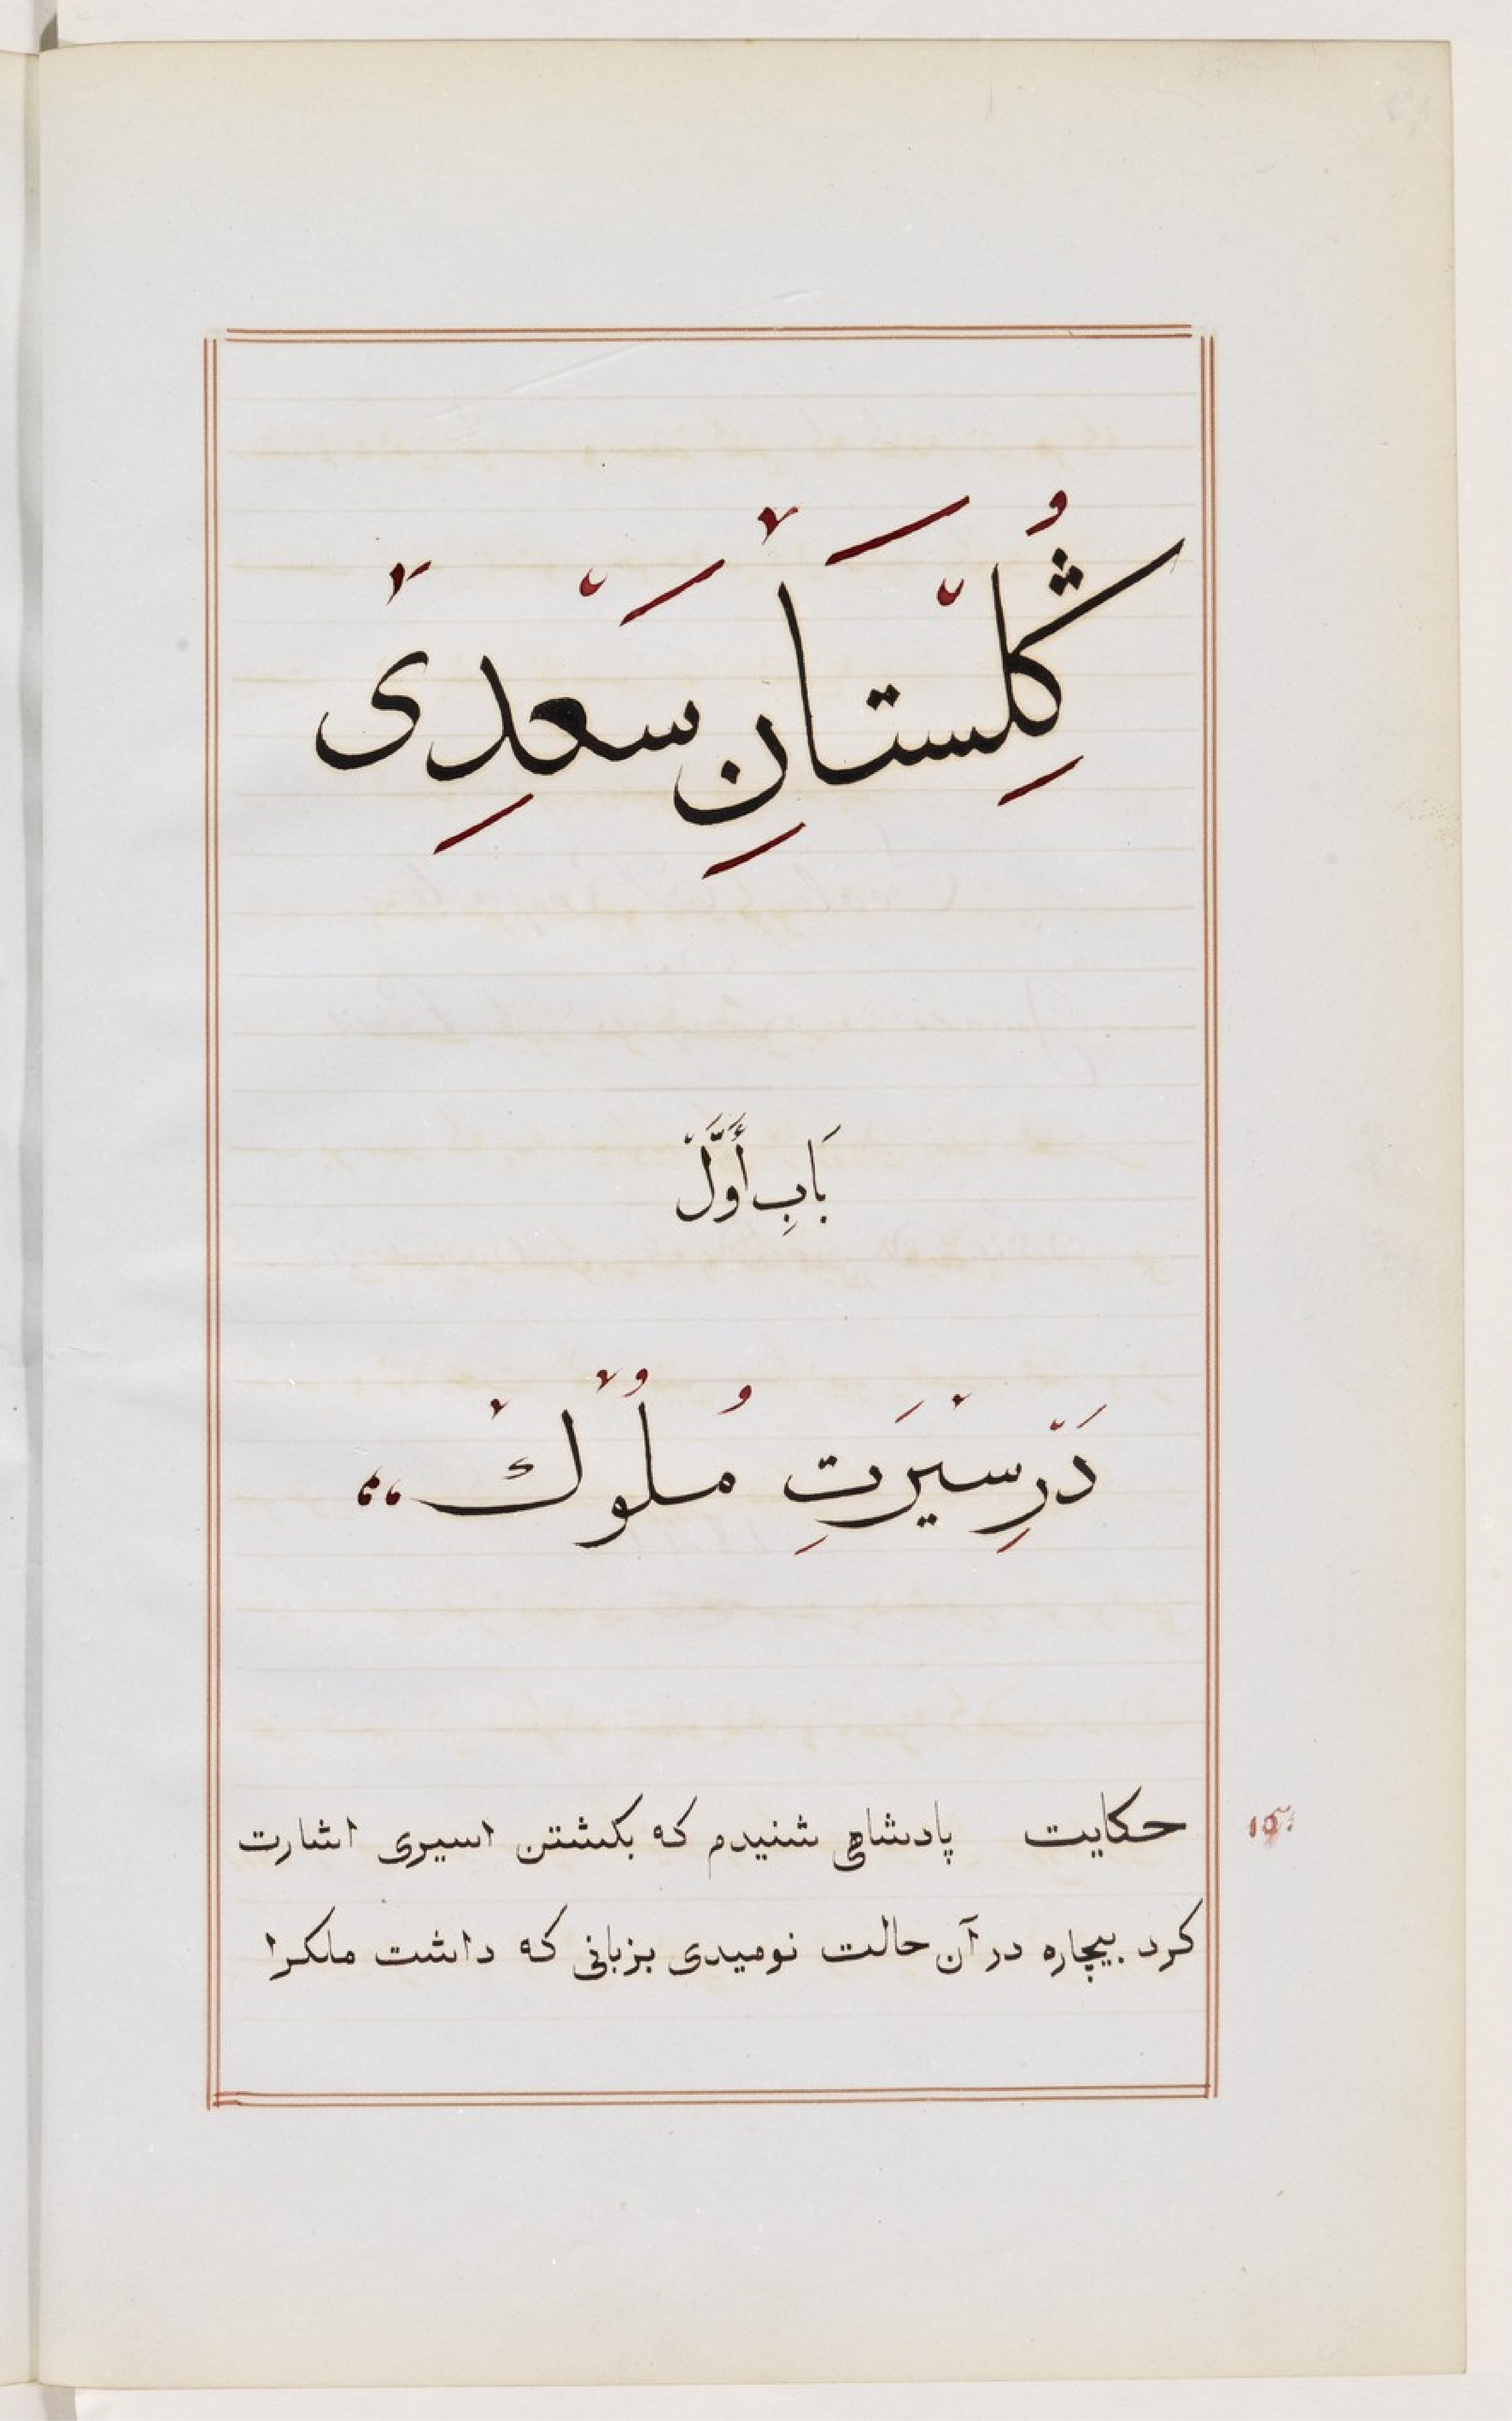 ݣُلِسْتَانِ سَعْدِىْ
بَابِ أَوَّلْ
دَرِ سیْرَتِ مُلُوْكْ ،،
حکایت پادشاهی شنیدم که بکشتن اسیری اشارت
کرد بیچاره در آن حالت نومیدی بزبانی که داشت ملکرا